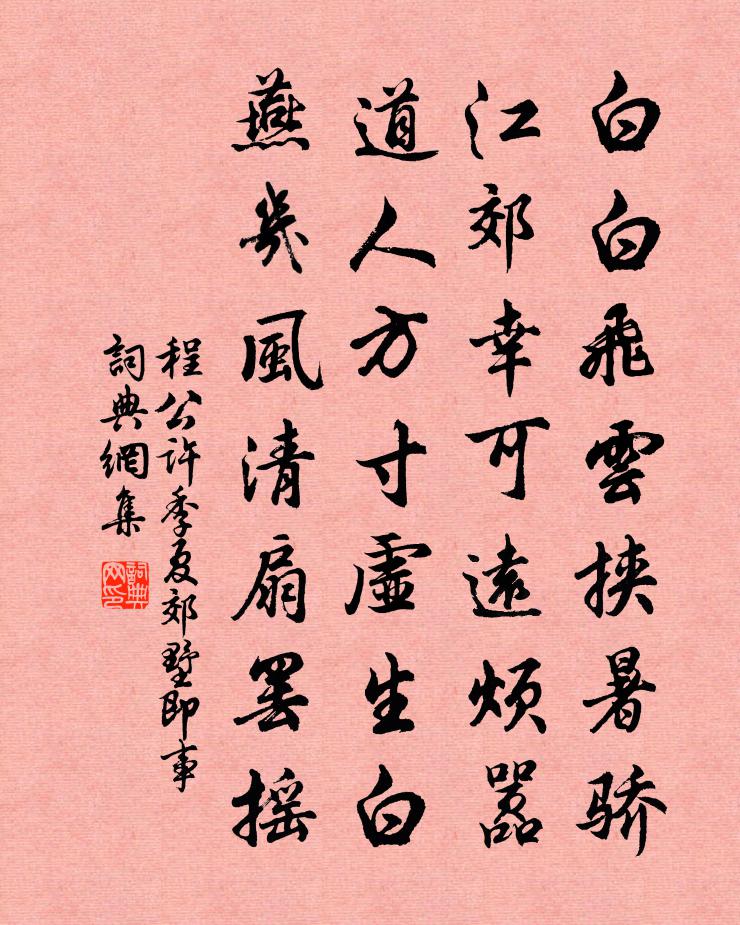 白白飛雲挾暑骄
江郊幸可遠煩嚣
道人方寸虛生白
燕几風清扇罢摇
程公许季夏郊墅即事
詞典網集
詞典网印